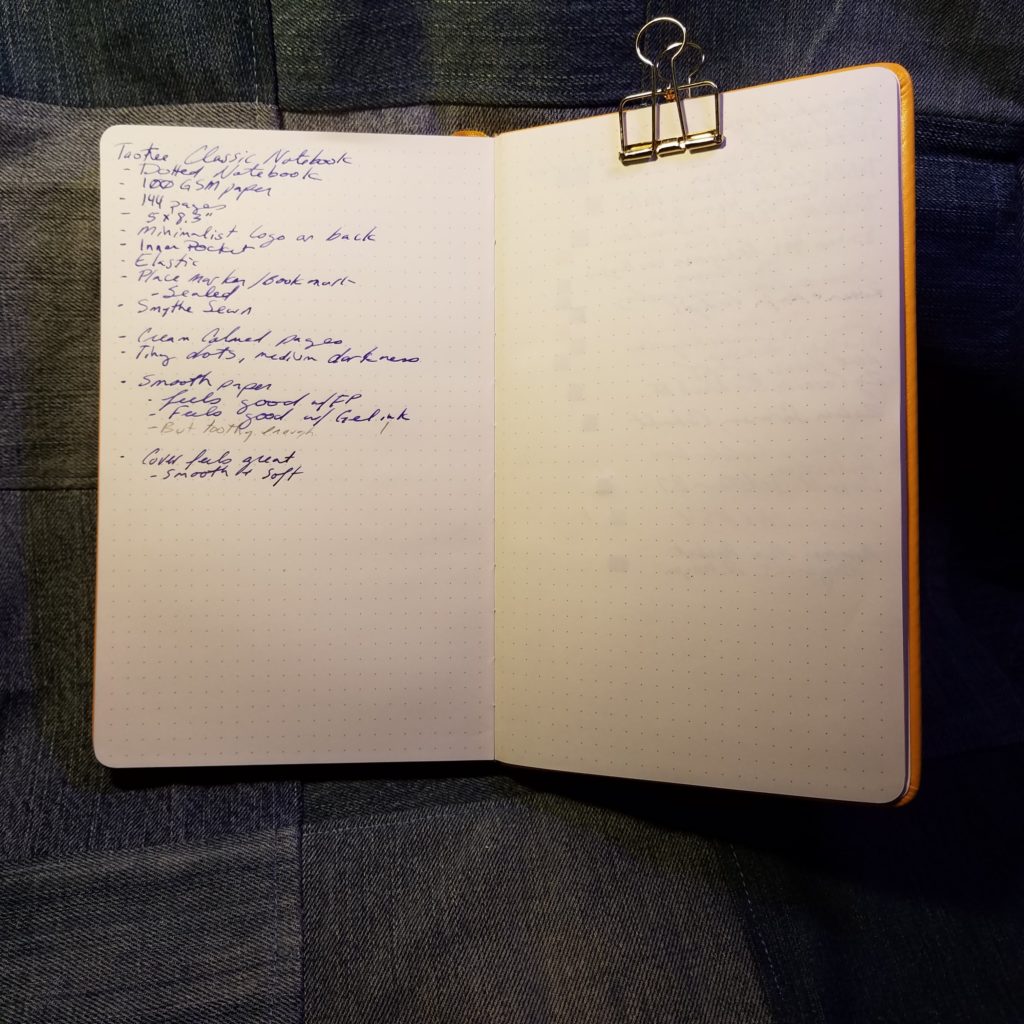 Taotree Classic Notebook
- Dotted Notebook
- 100 GSM paper
- 144 pages
- 5 x 8.3"
- Minimalist Logo on back
- Inner Pocket
- Elastic
- Place marker/Bookmark
- Sealed
- Smythe Sewn
- Cream Colored pages
- Tiny dots, medium darkness
- Smooth paper
- feels good w/FP
- Feels good w/ Gel ink
- But toothy enough
- Cover feels great
- smooth & soft